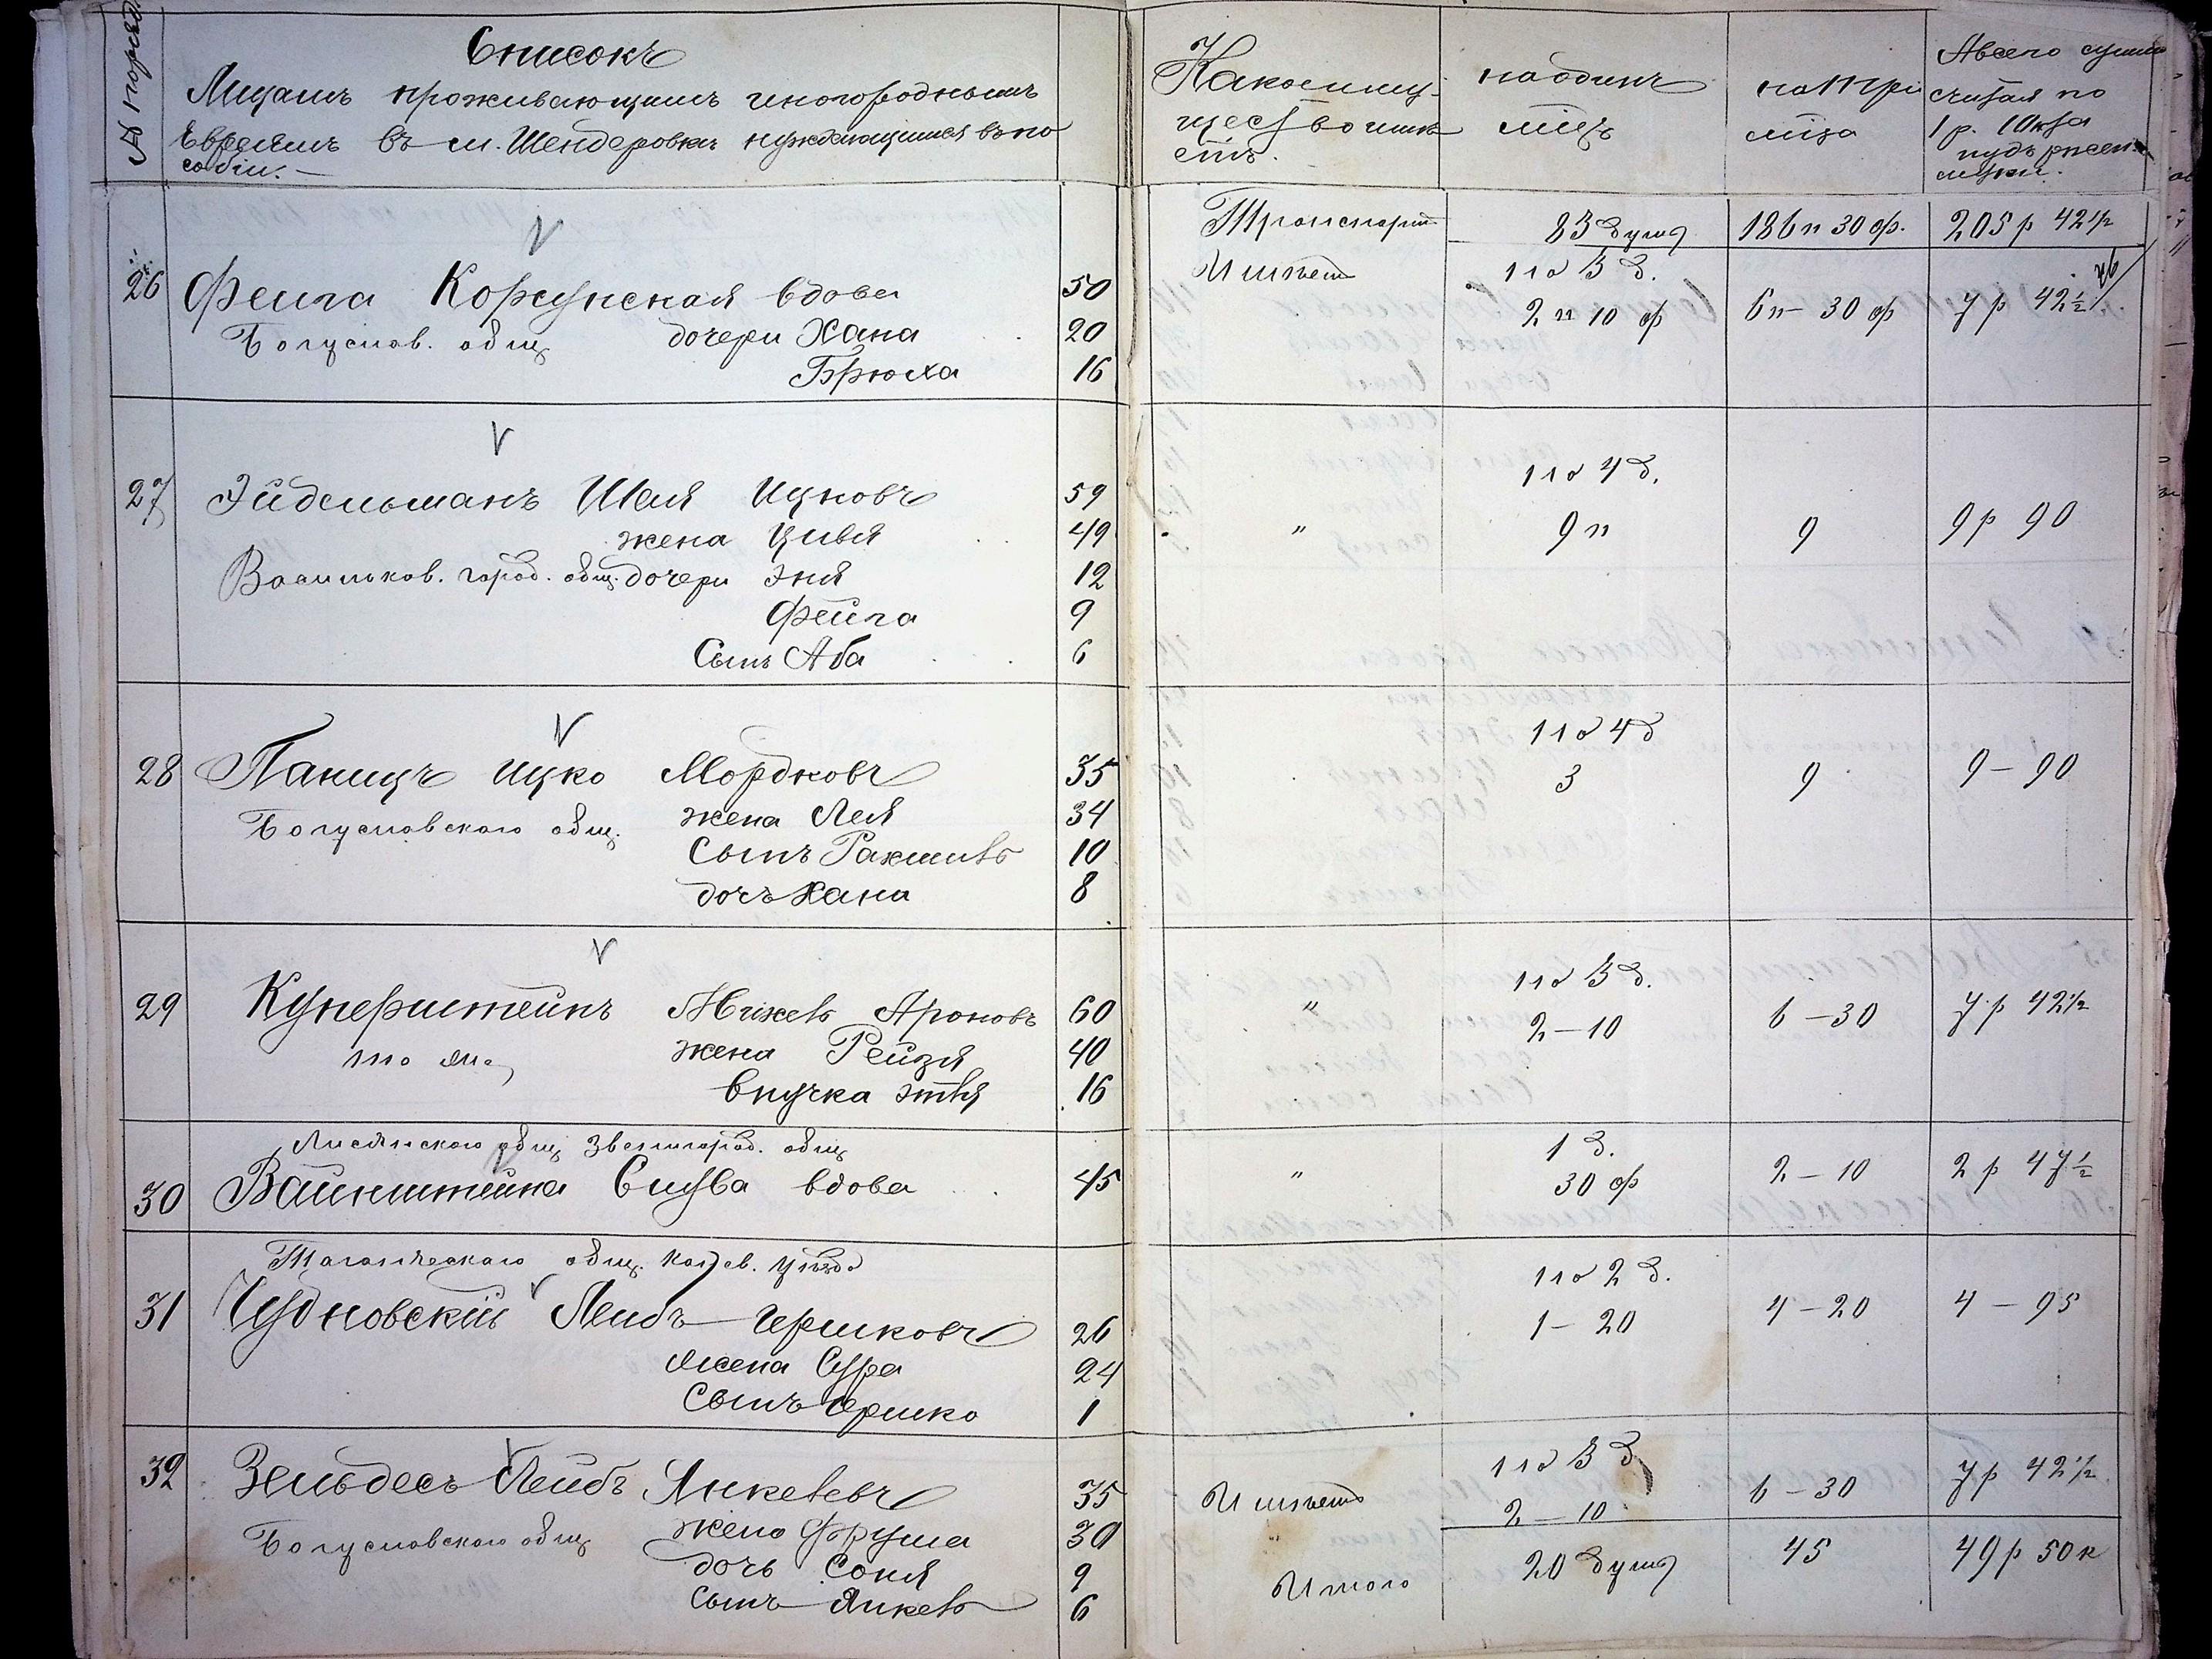 № поряд.
Списокъ
Лицамъ проживающимъ иногороднымъ
Евреямъ въ м. Шендеровки нуждающимся въ по
собіи. —
Какое иму-
щество имѣ
етъ.
на одинъ
мѣц.
на три
мѣца
А всего сумма
считая по
1 р. 10 к за
пудъ ржен.
муки.
Транспортъ 83 душ 186 п 30 ф. 205 р 42½
26 Фейга Корсунская вдова 50
Богуслов. общ дочери Хана 20
Брюха 16
И имѣет
на 3 д.
2 п 10 ф 6 п — 30 ф 7 р 42½
27 Эйдельманъ Шея Ицковъ 59
жена Цивя 49
Васильков. город. общ. дочери Эня 12
Фейга 9
Сынъ Аба 6
на 4 д.
" 9 п 9 9 р 90
28 Паницъ Ицко Мордковъ 35
Богуславского общ. жена Лея 34
Сынъ Рахмиль 10
дочъ Хана 8
на 4 д
3 9 9 — 90
29 Куперштейнъ Ароновъ 60
то же жена Рейзя 40
внучка Этя 16
на 3 д.
" 2 — 10 6 — 30 7 р 42½
Лисянского общ Звенигород. общ
30 Вайнштейна Слува вдова 45
1 д.
" 30 ф 2 — 10 2 р 47½
Таганческого общ. Канев. уѣзда
31 Чудновскій Лейбъ Гершковъ 26
жена Сура 24
Сынъ Гершко 1
на 2 д.
1 — 20 4 — 20 4 — 95
32 Зельдесъ Лейбъ Янкелевъ 35
Богуславского общ жена Фрума 30
дочь Соня 9
сынъ Янкель 6
И имѣетъ на 3 д
2 — 10 6 — 30 7 р 42½
"
Итого 20 душ 45 49 р 50 к